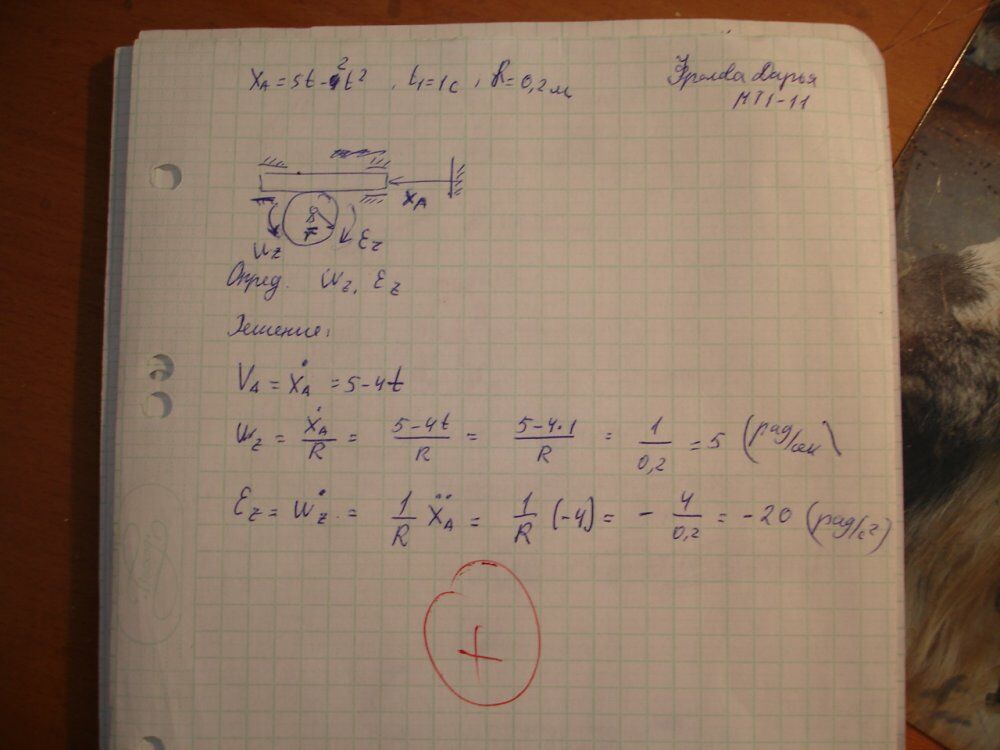 X_A = 5t - 2t² , t₁ = 1 c , R = 0,2 м
Фролова Дарья
МТ1-11
X_A
R
ω_z
ε_z
Опред. ω_z, ε_z
Решение:
V_A = Ẋ_A = 5-4t
ω_z = Ẋ_A/R = (5-4t)/R = (5-4·1)/R = 1/0,2 = 5 (рад/сек)
ε_z = ω̇_z = 1/R Ẍ_A = 1/R (-4) = - 4/0,2 = -20 (рад/с²)
+